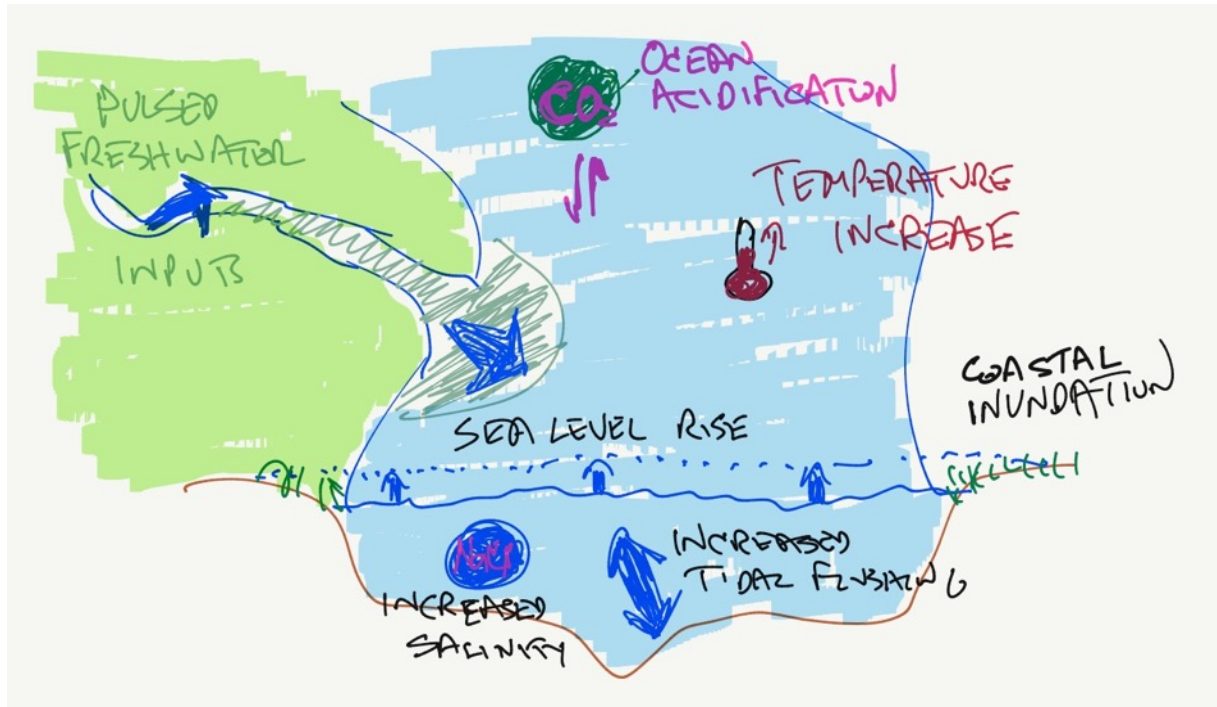 PULSED
FRESHWATER
INPUTS
CO₂
OCEAN
ACIDIFICATION
TEMPERATURE
INCREASE
COASTAL
INUNDATION
SEA LEVEL RISE
NaCl
INCREASED
SALINITY
INCREASED
TIDAL FLUSHING